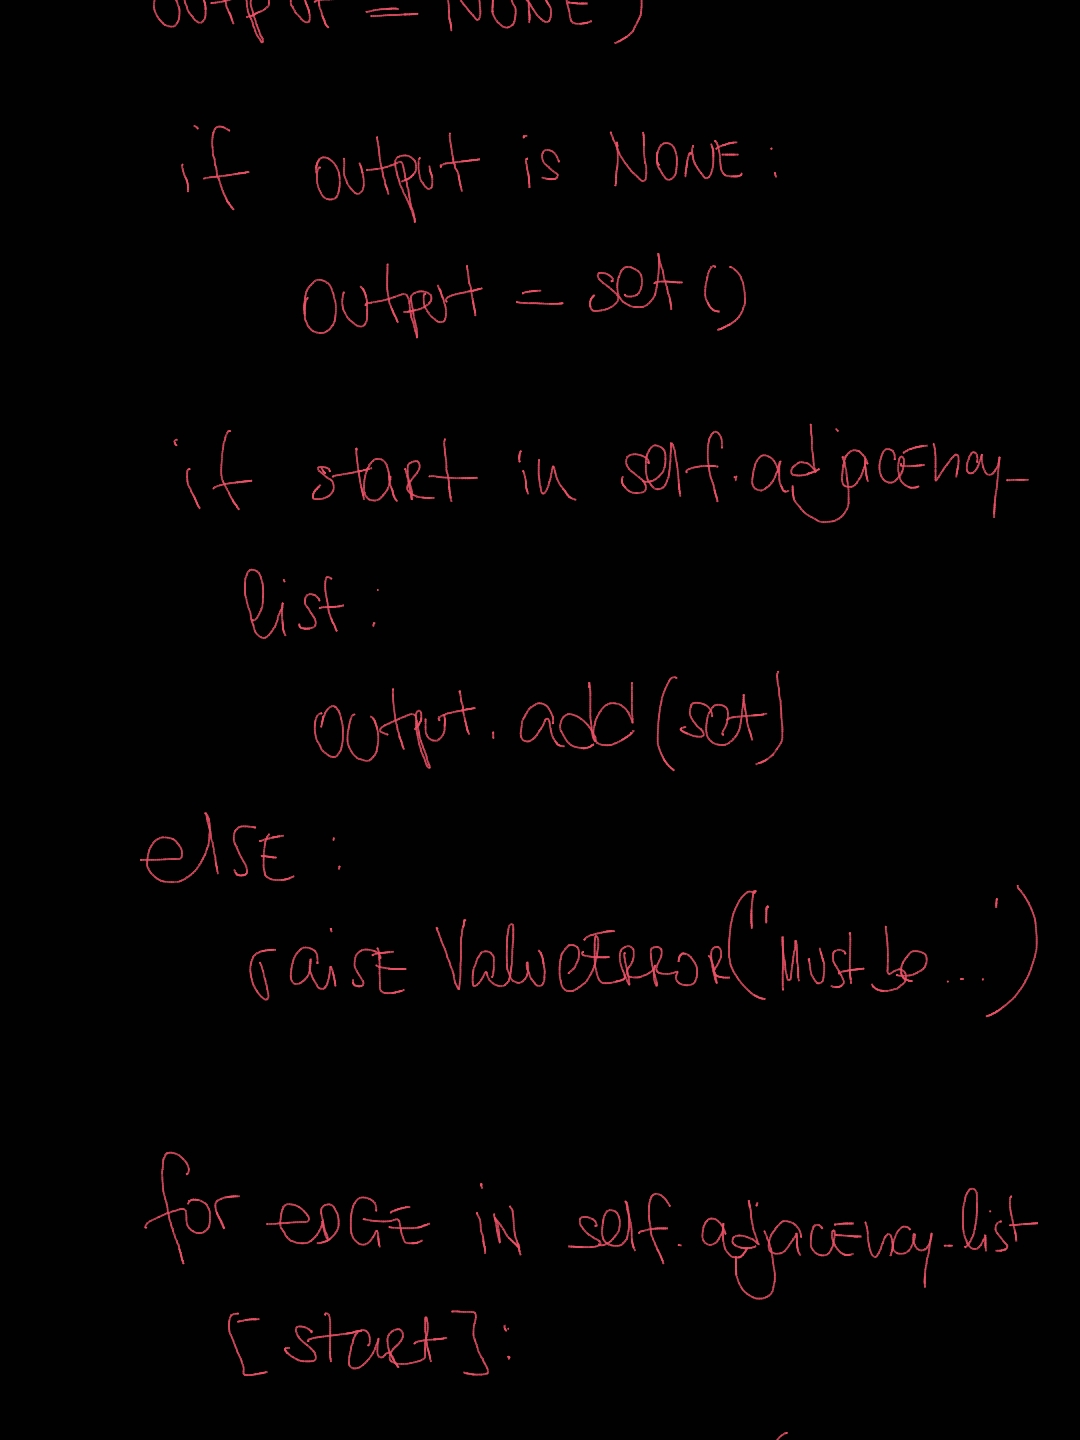 output = NONE)
if output is NONE:
output = set ()
if start in self.adjacency_
list:
output.add(set)
else:
raise ValueError("Must be...")
for edge in self.adjacency_list
[start]: